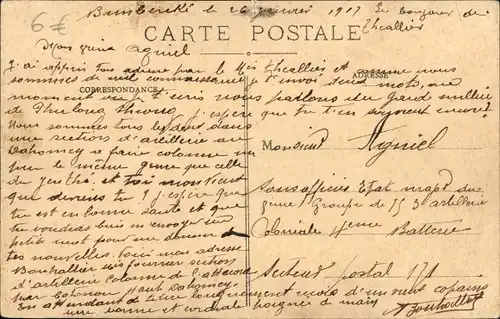 6€
Bimbéréké le 26 janvier 1917 Les de
Theallier
Mon Agniel
CARTE POSTALE
J'ai appris ton adresse par le Mis Theallier et comme nous
sommes de connaissance je t'envoi deux mots, au
ADRESSE
CORRESPONDANCE
moment ou je t'écris nous parlons du grand
de j'espère que tu t'en souvient encore?
Nous sommes tous les deux dans
une section d'artillerie au
Dahomey a faire colonne un
peu le même genre que celle
du et toi mon vieux
que deviens tu j'espère que
tu est en bonne santé et que
tu voudras bien m'envoyer un
petit mot pour me donner de
tes nouvelles. Voici mon adresse
Bonhallier section
d'artillerie Colonne de l'Atacora
par Cotonou Haut Dahomey.
En attendant de te lire longuement reçois d'un vieux copain
une bonne et cordiale poignée de main
Monsieur Agniel
Sous officier Etat major du
Groupe de 75 3 artillerie
Coloniale Batterie
Secteur postal 171
Bonhallier